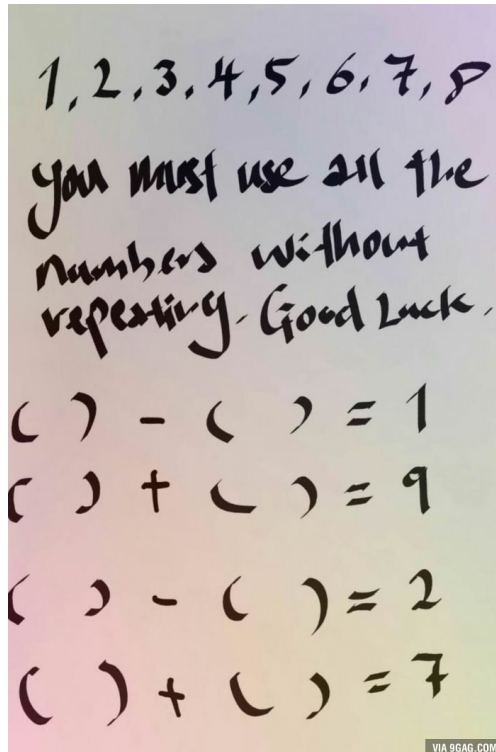 1, 2, 3, 4, 5, 6, 7, 8
you must use all the
numbers without
repeating. Good Luck.
( ) - ( ) = 1
( ) + ( ) = 9
( ) - ( ) = 2
( ) + ( ) = 7
VIA 9GAG.COM